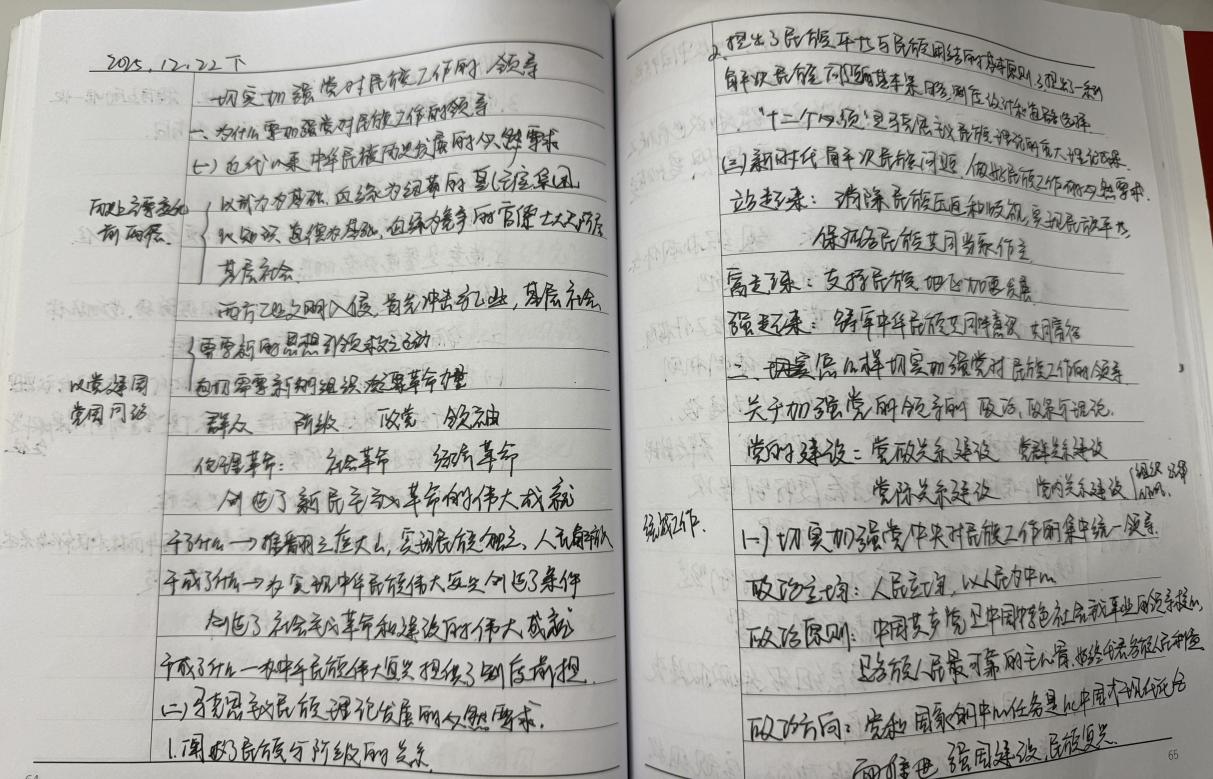 2025.12.22 下
切实加强党对民族工作的领导
一、为什么要加强党对民族工作的领导
(一)近代以来中华民族历史发展的必然要求
历史上主要变化
前两层
以武力为基础,血缘为纽带的
以知识、道德为基础,
的官僚士大夫阶层
基层社会
西方工业文明入侵,首先冲击手工业,基层社会
需要新的思想引领救亡运动
迫切需要新的组织凝聚革命力量
以党建国
党国同治
群众 阶级 政党 领袖
伦理革命: 社会革命 经济革命
创造了新民主主义革命的伟大成就
干了什么→推翻三座大山,实现民族独立、人民解放
干成了什么→为实现中华民族伟大复兴创造了条件
创造了社会主义革命和建设的伟大成就
干成了什么—为中华民族伟大复兴提供了制度前提.
(二)马克思主义民族理论发展的必然要求.
1.阐明了民族与阶级的关系
64
2.提出了民族平等与民族团结的基本原则,提出了一系列
解决民族问题基本 制度设计和道路选择
“十二个必须”是马克思主义民族理论的重大理论成果.
(三)新时代解决民族问题,做好民族工作的必然要求.
站起来:消除民族压迫和歧视,实现民族平等,
保证各民族共同当家作主
富起来:支持民族地区加速发展
强起来:铸牢中华民族共同体意识 共同富裕
二、怎么样切实加强党对民族工作的领导.
关于加强党的领导的政治、政策与理论.
党的建设:党政关系建设 党群关系建设
党际关系建设 党内关系建设 组织
统战工作.
(一)切实加强党中央对民族工作的集中统一领导.
政治立场:人民立场,以人民为中心
政治原则:中国共产党是中国特色社会主义事业的领导核心,
是各族人民最可靠的主心骨,始终代表各族人民利益
政治方向:党和国家的中心任务是以中国式现代化全
面推进 强国建设,民族复兴.
65